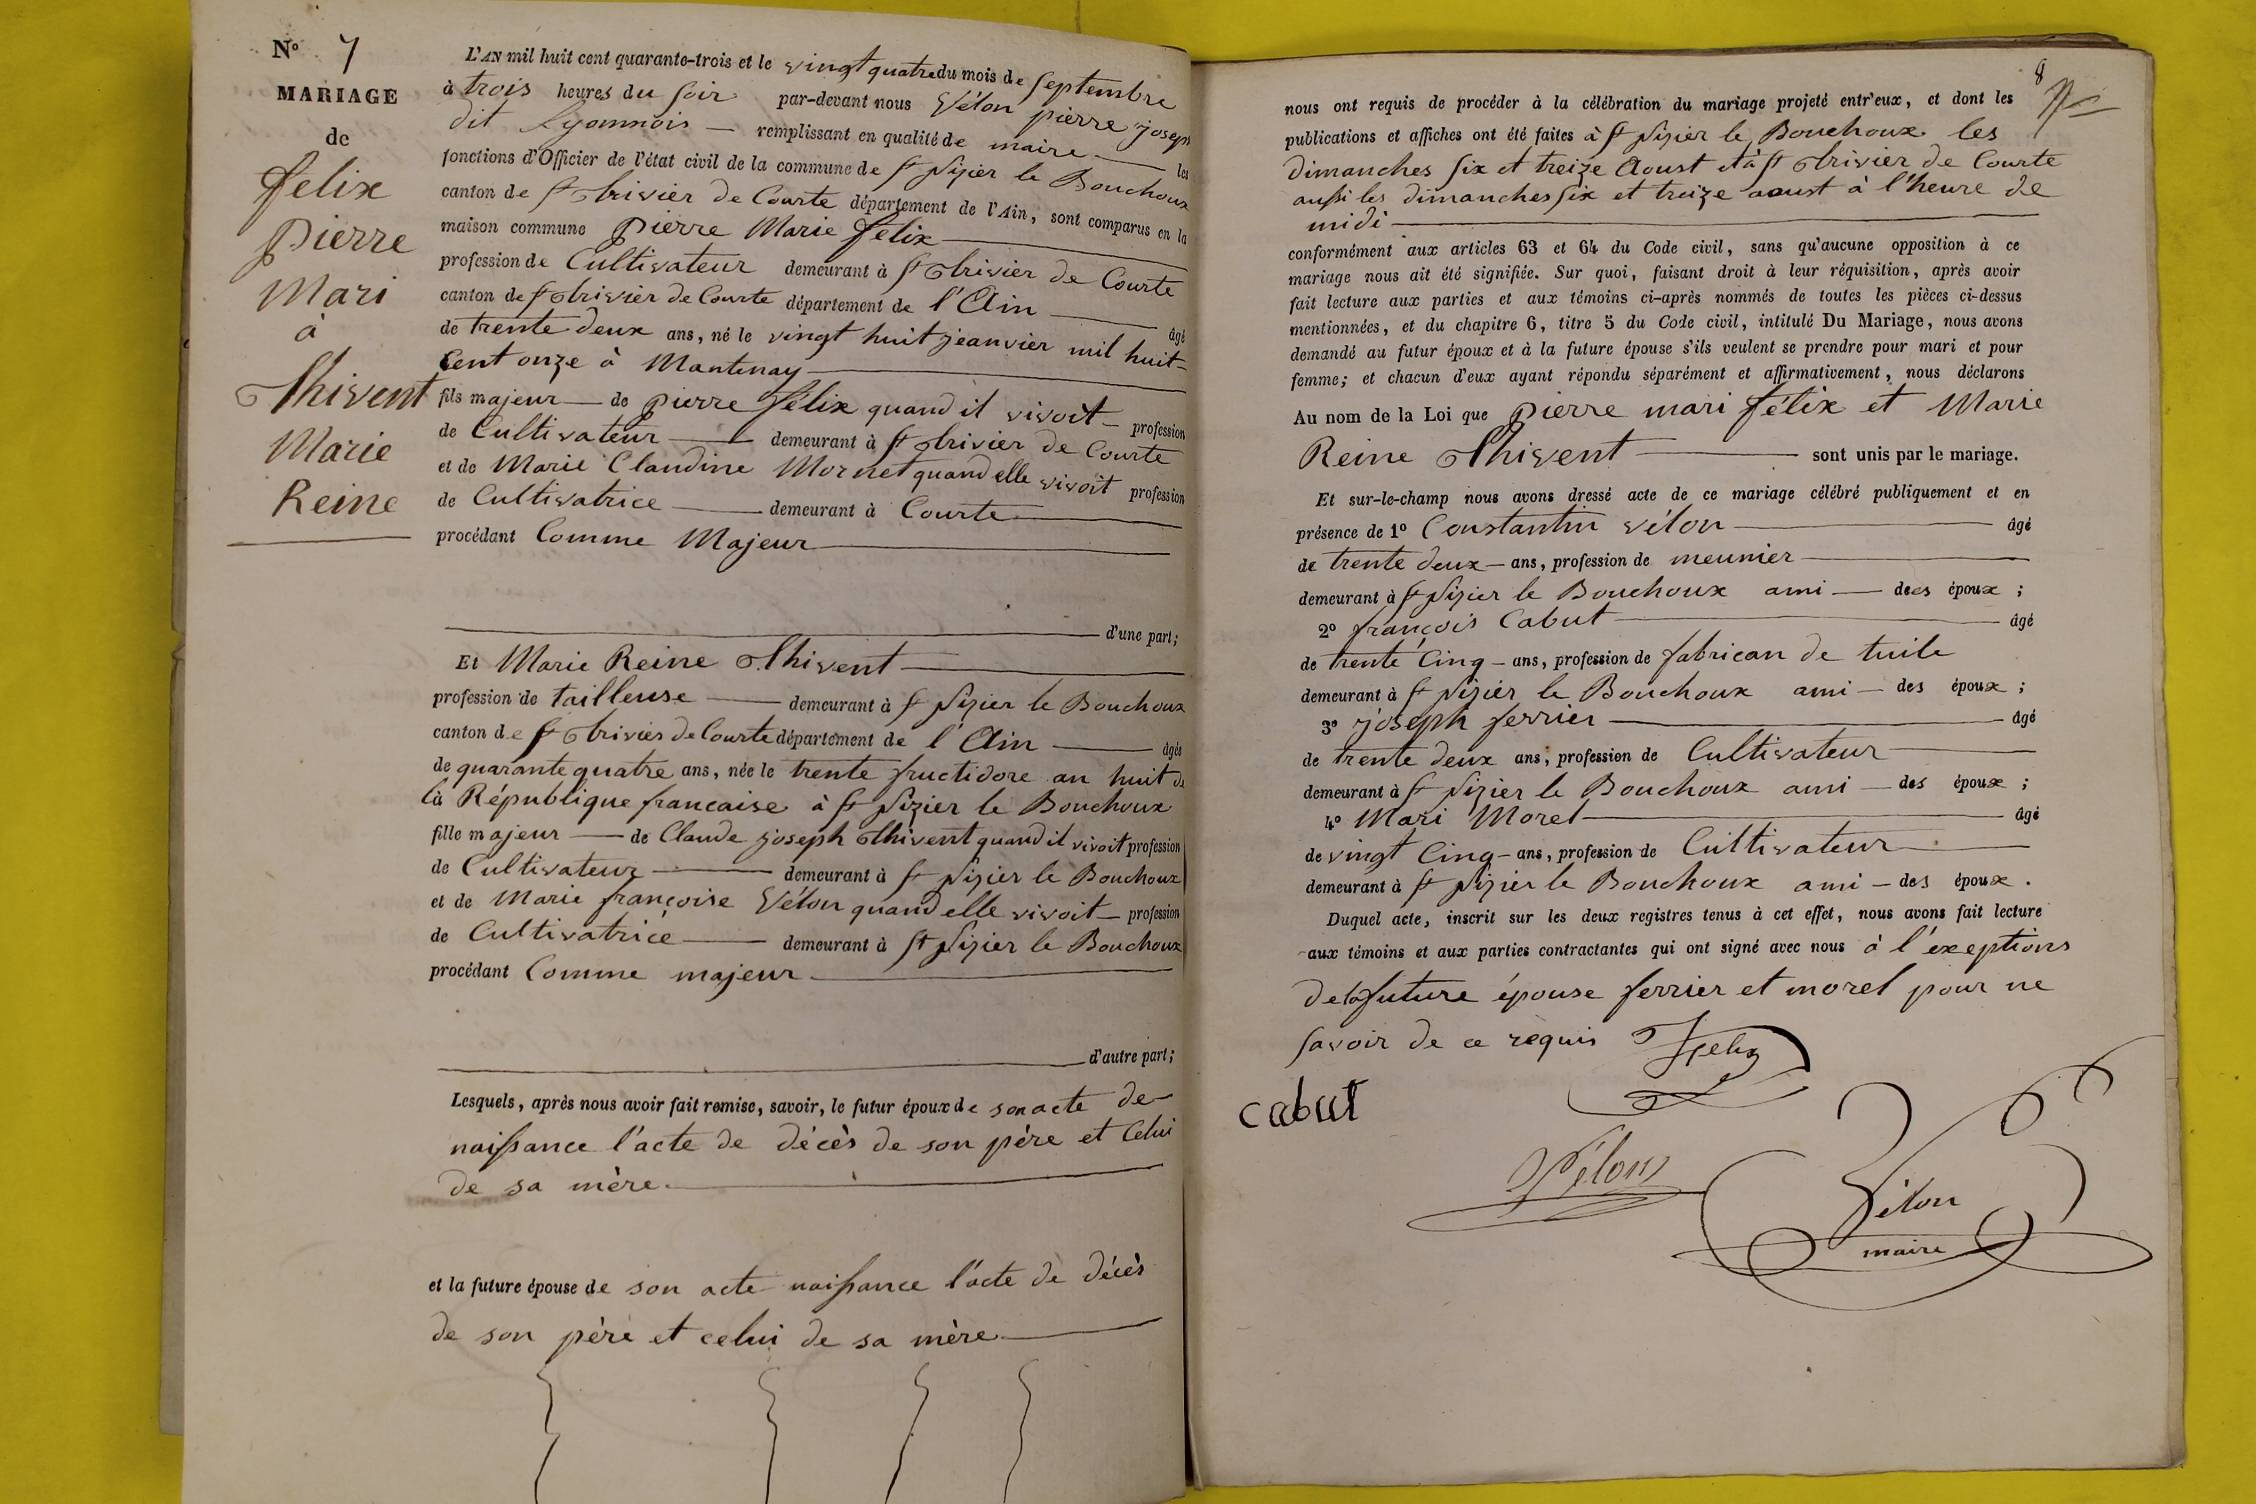 N° 7
MARIAGE
de
felix
pierre
Mari
à
Thivent
Marie
Reine
L'AN mil huit cent quarante-trois et le vingt quatre du mois de septembre
à trois heures du soir par-devant nous Vélon pierre joseph
dit Lyonnois — remplissant en qualité de maire — les
fonctions d'Officier de l'état civil de la commune de St Nizier le Bouchoux
canton de St Trivier de Courte département de l'Ain, sont comparus en la
maison commune pierre Marie félix
profession de Cultivateur demeurant à St Trivier de Courte
canton de St Trivier de Courte département de l'Ain — âgé
de trente deux ans, né le vingt huit jeanvier mil huit-
cent onze à Mantenay
fils majeur — de pierre félix quand il vivoit — profession
de Cultivateur — demeurant à St Trivier de Courte
et de Marie Claudine Mornet quand elle vivoit profession
de Cultivatrice — demeurant à Courte
procédant Comme Majeur
d'une part;
Et Marie Reine Thivent
profession de tailleuse — demeurant à St Nizier le Bouchoux
canton de St Trivier de Courte département de l'Ain — âgée
de quarante quatre ans, née le trente fructidore an huit de
la République francaise à St Nizier le Bouchoux
fille majeur — de Claude joseph Thivent quand il vivoit profession
de Cultivateur — demeurant à St Nizier le Bouchoux
et de Marie françoise Vélon quand elle vivoit — profession
de Cultivatrice — demeurant à St Nizier le Bouchoux
procédant Comme majeur
d'autre part;
Lesquels, après nous avoir fait remise, savoir, le futur époux de son acte de
naissance l'acte de décès de son père et Celui
de sa mère
et la future épouse de son acte naissance l'acte de décès
de son père et celui de sa mère
8
nous ont requis de procéder à la célébration du mariage projeté entr'eux, et dont les
publications et affiches ont été faites à St Nizier le Bouchoux les
dimanches six et treize Aoust et à St Trivier de Courte
aussi les dimanches six et treize aoust à l'heure de
midi
conformément aux articles 63 et 64 du Code civil, sans qu'aucune opposition à ce
mariage nous ait été signifiée. Sur quoi, faisant droit à leur réquisition, après avoir
fait lecture aux parties et aux témoins ci-après nommés de toutes les pièces ci-dessus
mentionnées, et du chapitre 6, titre 5 du Code civil, intitulé Du Mariage, nous avons
demandé au futur époux et à la future épouse s'ils veulent se prendre pour mari et pour
femme; et chacun d'eux ayant répondu séparément et affirmativement, nous déclarons
Au nom de la Loi que pierre mari félix et Marie
Reine Thivent — sont unis par le mariage.
Et sur-le-champ nous avons dressé acte de ce mariage célébré publiquement et en
présence de 1° Constantin vélon — âgé
de trente deux — ans, profession de meunier
demeurant à St Nizier le Bouchoux ami — des époux ;
2° françois Cabut — âgé
de trente Cinq — ans, profession de fabrican de tuile
demeurant à St Nizier le Bouchoux ami — des époux ;
3° joseph ferrier — âgé
de trente deux ans, profession de Cultivateur
demeurant à St Nizier le Bouchoux ami — des époux ;
4° Mari Morel — âgé
de vingt Cinq — ans, profession de Cultivateur
demeurant à St Nizier le Bouchoux ami — des époux .
Duquel acte, inscrit sur les deux registres tenus à cet effet, nous avons fait lecture
aux témoins et aux parties contractantes qui ont signé avec nous à l'exeptions
de la future épouse ferrier et morel pour ne
savoir de ce requis felix
cabut
Vélon
Vélon
maire